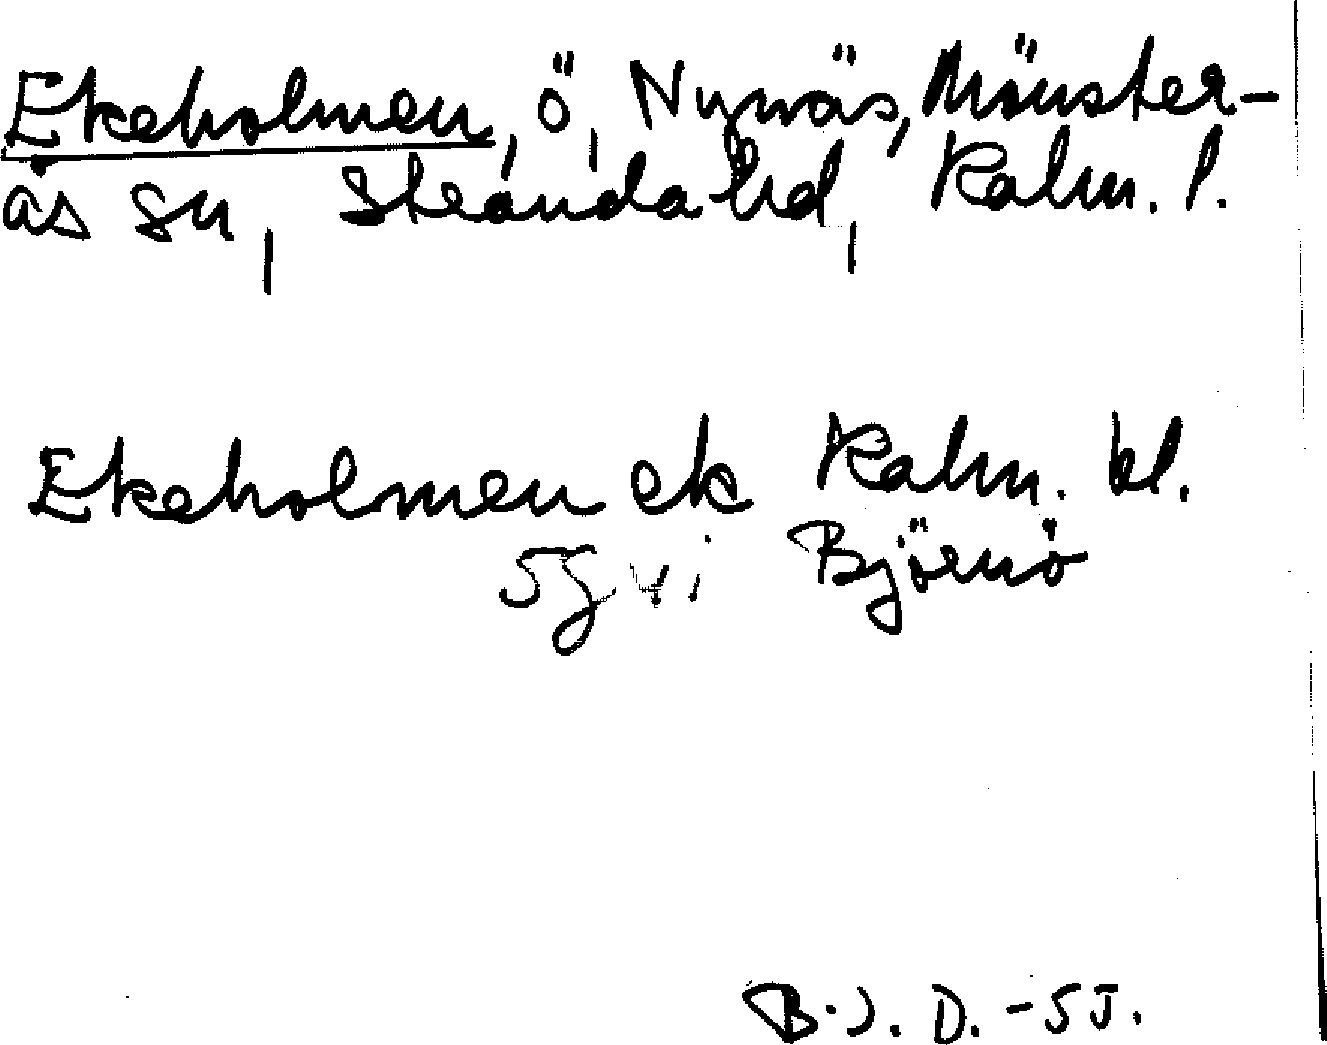 Ekeholmen, ö, Nynäs, Mönster-
ås sn, Stranda hd, Kalm. l.
Ekeholmen ek Kalm. bl.
5J vi Björnö
B.J. D. -55.